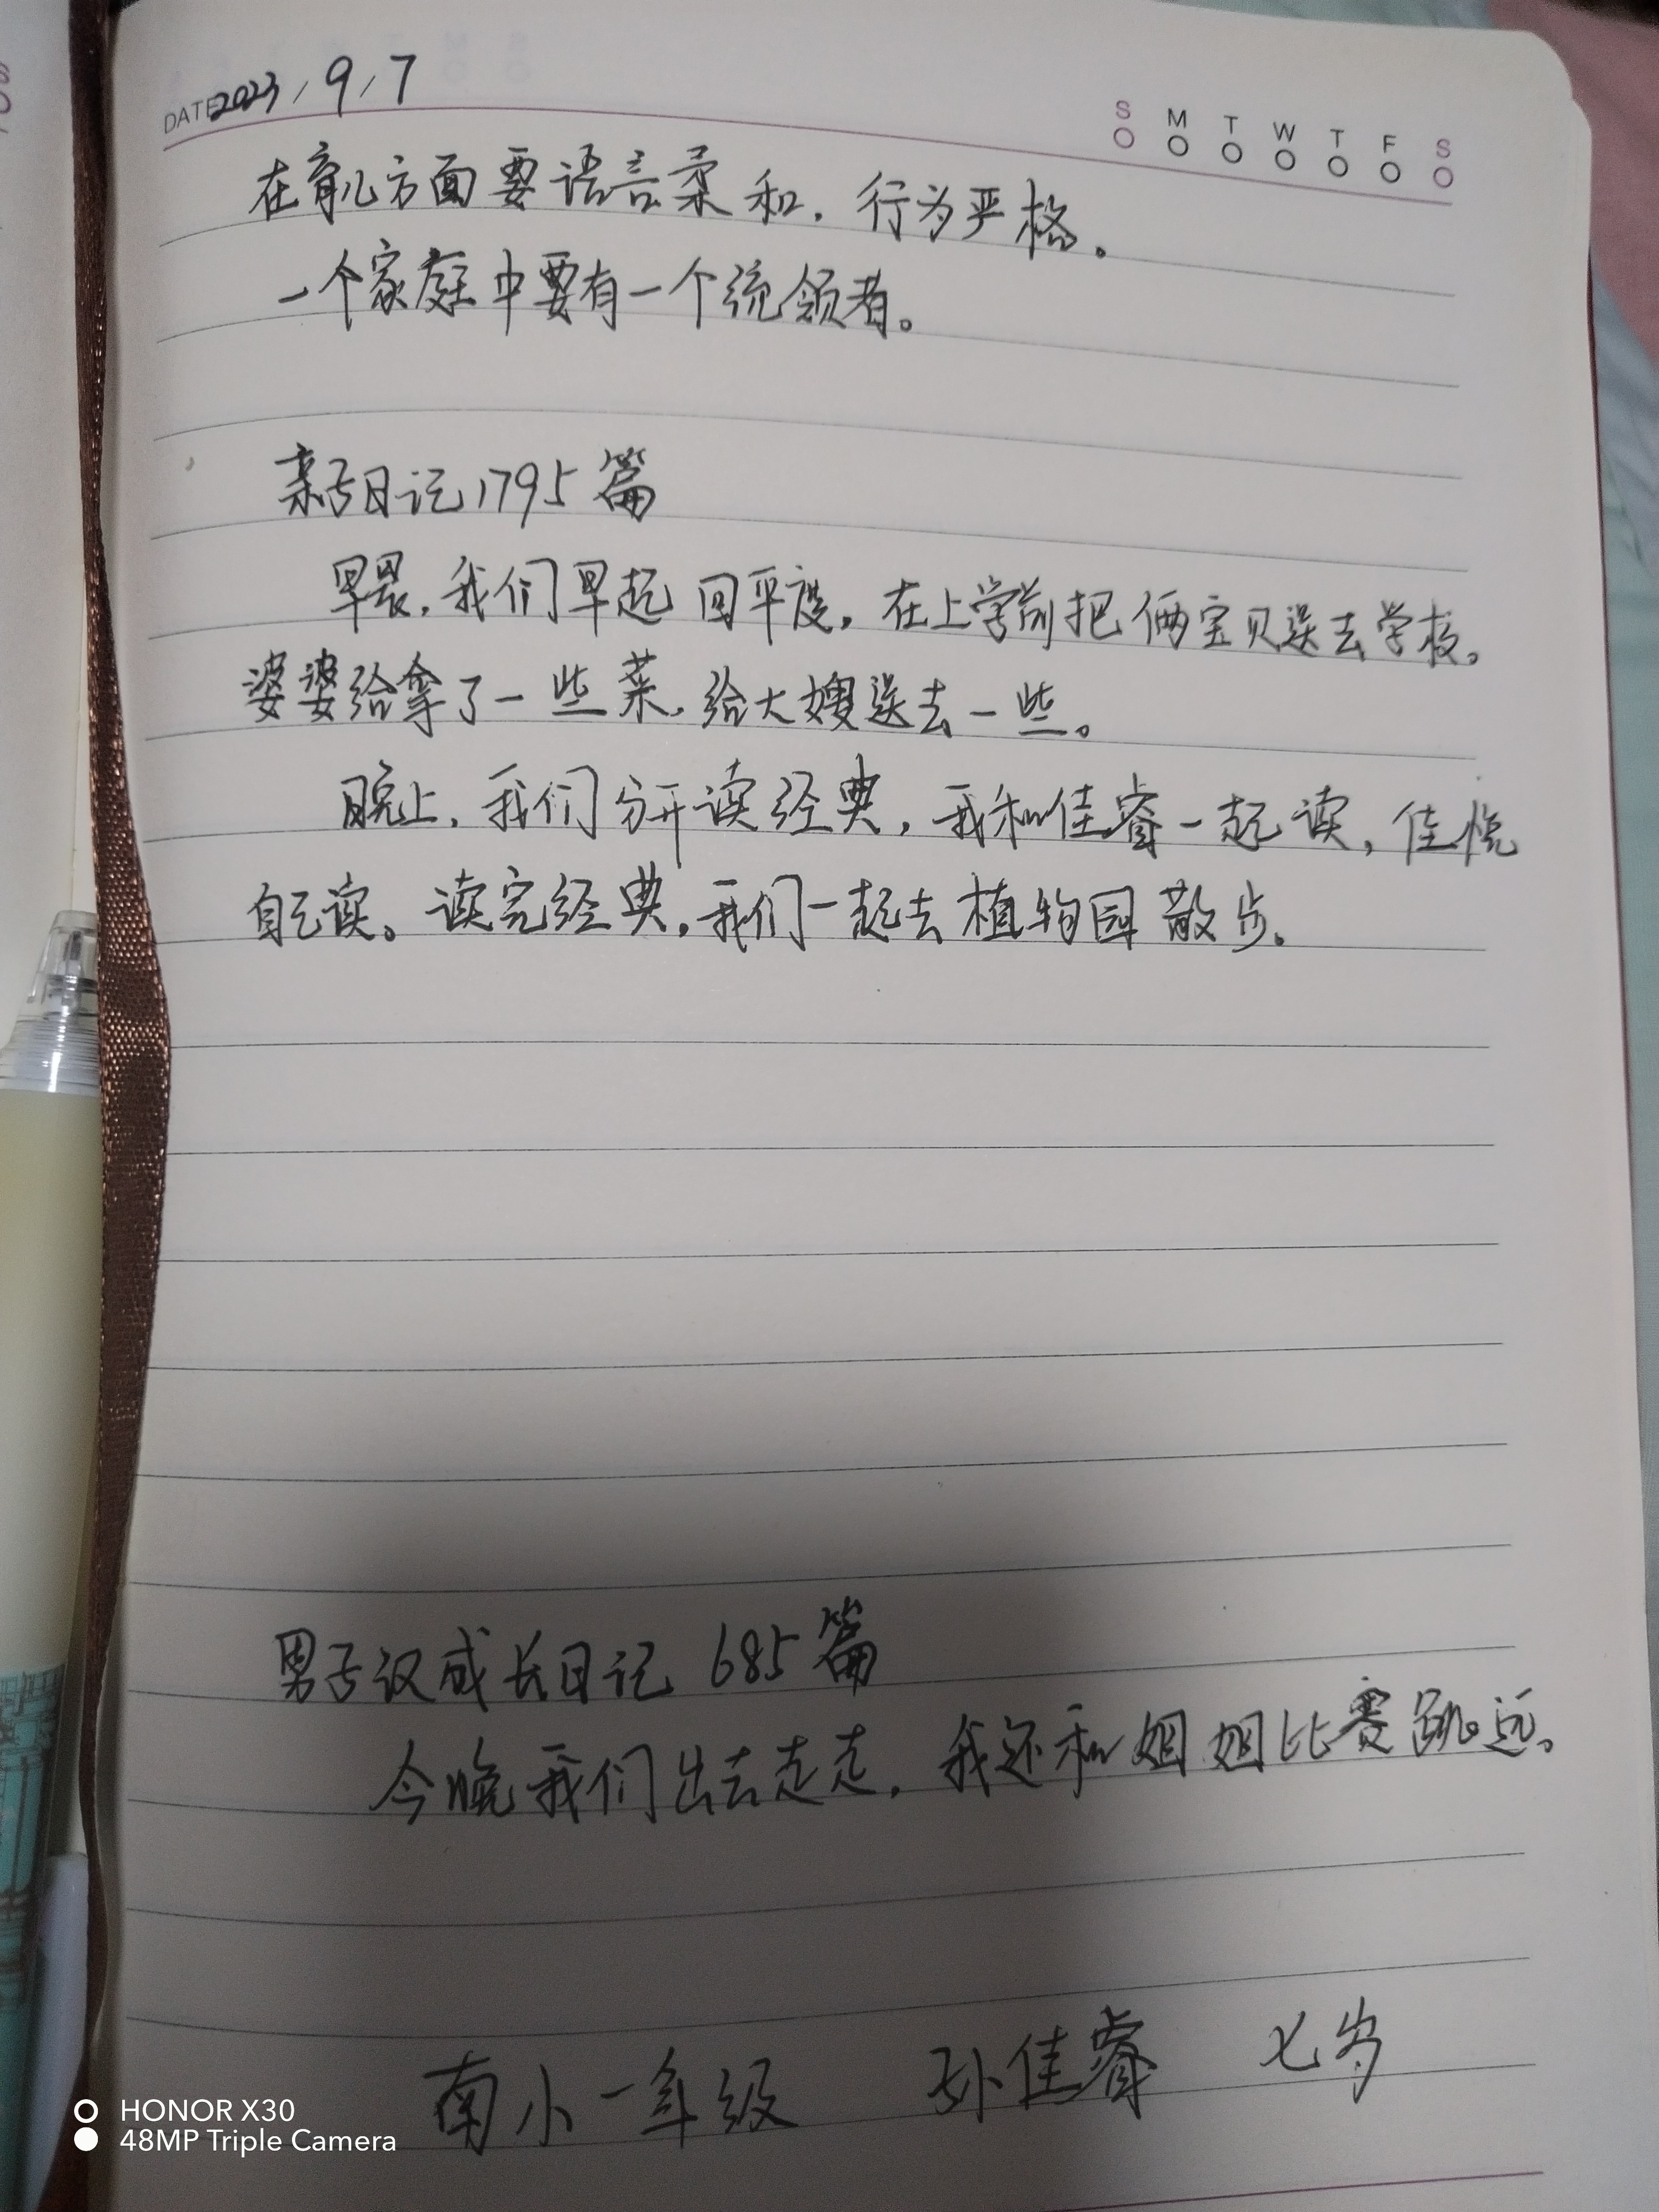 DATE 2023/9/7
S M T W T F S
在育儿方面要语言柔和，行为严格。
一个家庭中要有一个统领者。
亲子日记1795篇
早晨，我们早起回平度，在上学前把俩宝贝送去学校。
婆婆给拿了一些菜，给大嫂送去一些。
晚上，我们分开读经典，我和佳睿一起读，佳悦
自己读。读完经典，我们一起去植物园散步。
男子汉成长日记 685篇
今晚我们出去走走，我还和姐姐比赛跳远。
南小一年级 孙佳睿 七岁
HONOR X30
48MP Triple Camera